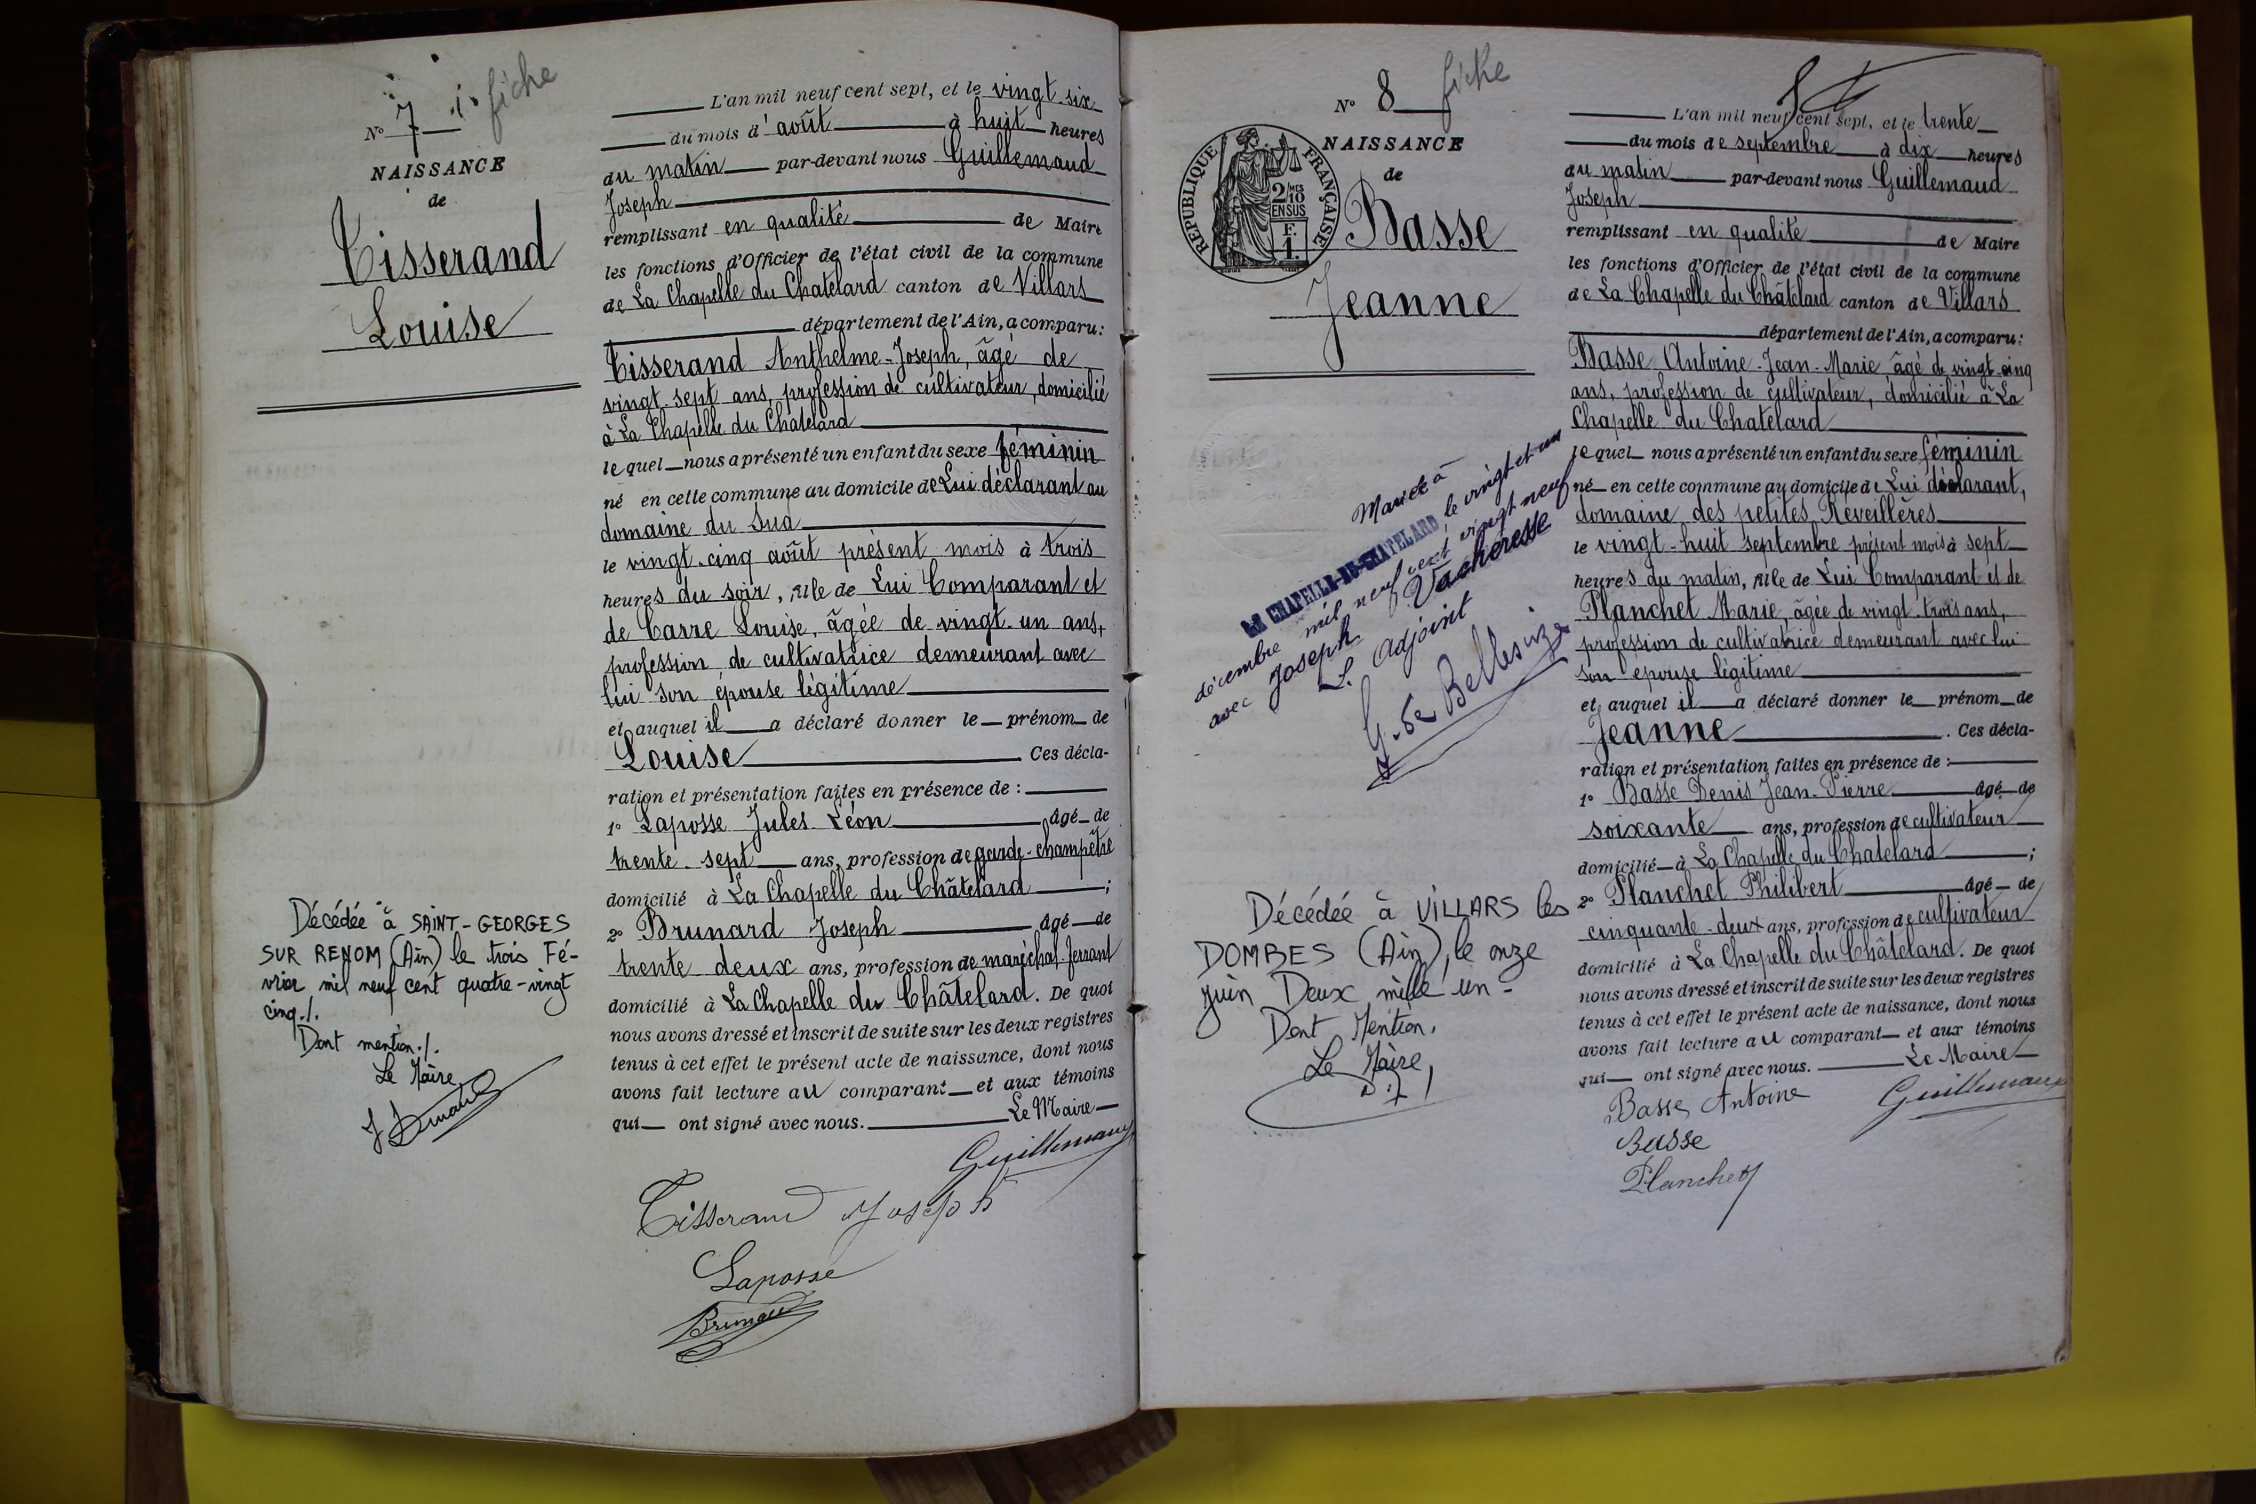 N° 7 fiche
NAISSANCE
de
Tisserand
Louise
Décédée à SAINT-GEORGES
SUR RENOM (Ain) le trois Fé-
vrier mil neuf cent quatre-vingt
cinq./.
Dont mention./.
Le Maire
L'an mil neuf cent sept, et le vingt-six
du mois d'août à huit heures
du matin par-devant nous Guillemaud
Joseph
remplissant en qualité de Maire
les fonctions d'Officier de l'état civil de la commune
de La Chapelle du Chatelard canton de Villars
département de l'Ain, a comparu:
Tisserand Anthelme-Joseph, âgé de
vingt-sept ans, profession de cultivateur, domicilié
à La Chapelle du Chatelard
lequel nous a présenté un enfant du sexe féminin
né en cette commune au domicile de Lui déclarant au
domaine du Sud
le vingt-cinq août présent mois à trois
heures du soir, fille de Lui Comparant et
de Carre Louise, âgée de vingt-un ans,
profession de cultivatrice demeurant avec
lui son épouse légitime
et auquel il a déclaré donner le prénom de
Louise Ces décla-
ration et présentation faites en présence de :
1° Laposse Jules Léon âgé de
trente-sept ans, profession de garde-champêtre
domicilié à La Chapelle du Châtelard ;
2° Brunard Joseph âgé de
trente deux ans, profession de maréchal-ferrant
domicilié à La Chapelle du Châtelard. De quoi
nous avons dressé et inscrit de suite sur les deux registres
tenus à cet effet le présent acte de naissance, dont nous
avons fait lecture au comparant et aux témoins
qui ont signé avec nous. Le Maire
Guillemaud
Tisserand Joseph
Laposse
Brunard
N° 8 fiche
NAISSANCE
de
RÉPUBLIQUE FRANÇAISE
2/10 MES
EN SUS
F.
1.
Basse
Jeanne
Mariée à
LA CHAPELLE-DU-CHATELARD, le vingt et un
décembre mil neuf cent vingt neuf
avec Joseph Vacheresse
L. Adjoint
G. de Bellesize
Décédée à VILLARS les
DOMBES (Ain), le onze
juin Deux mille un -
Dont Mention.
Le Maire,
L'an mil neuf cent sept, et le trente
du mois de septembre à dix heures
du matin par-devant nous Guillemaud
Joseph
remplissant en qualité de Maire
les fonctions d'Officier de l'état civil de la commune
de La Chapelle du Châtelard canton de Villars
département de l'Ain, a comparu:
Basse Antoine-Jean-Marie âgé de vingt-cinq
ans, profession de cultivateur, domicilié à La
Chapelle du Chatelard
lequel nous a présenté un enfant du sexe féminin
né en cette commune au domicile de Lui déclarant,
domaine des petites Réveillères
le vingt-huit septembre présent mois à sept
heures du matin, fille de Lui Comparant et de
Planchet Marie, âgée de vingt-trois ans,
profession de cultivatrice demeurant avec lui
son épouse légitime
et auquel il a déclaré donner le prénom de
Jeanne . Ces décla-
ration et présentation faites en présence de :
1° Basse Denis Jean-Pierre âgé de
soixante ans, profession de cultivateur
domicilié à La Chapelle du Chatelard ;
2° Planchet Philibert âgé de
cinquante-deux ans, profession de cultivateur
domicilié à La Chapelle du Châtelard. De quoi
nous avons dressé et inscrit de suite sur les deux registres
tenus à cet effet le présent acte de naissance, dont nous
avons fait lecture au comparant et aux témoins
qui ont signé avec nous. Le Maire
Basse Antoine Guillemaud
Basse
Planchet